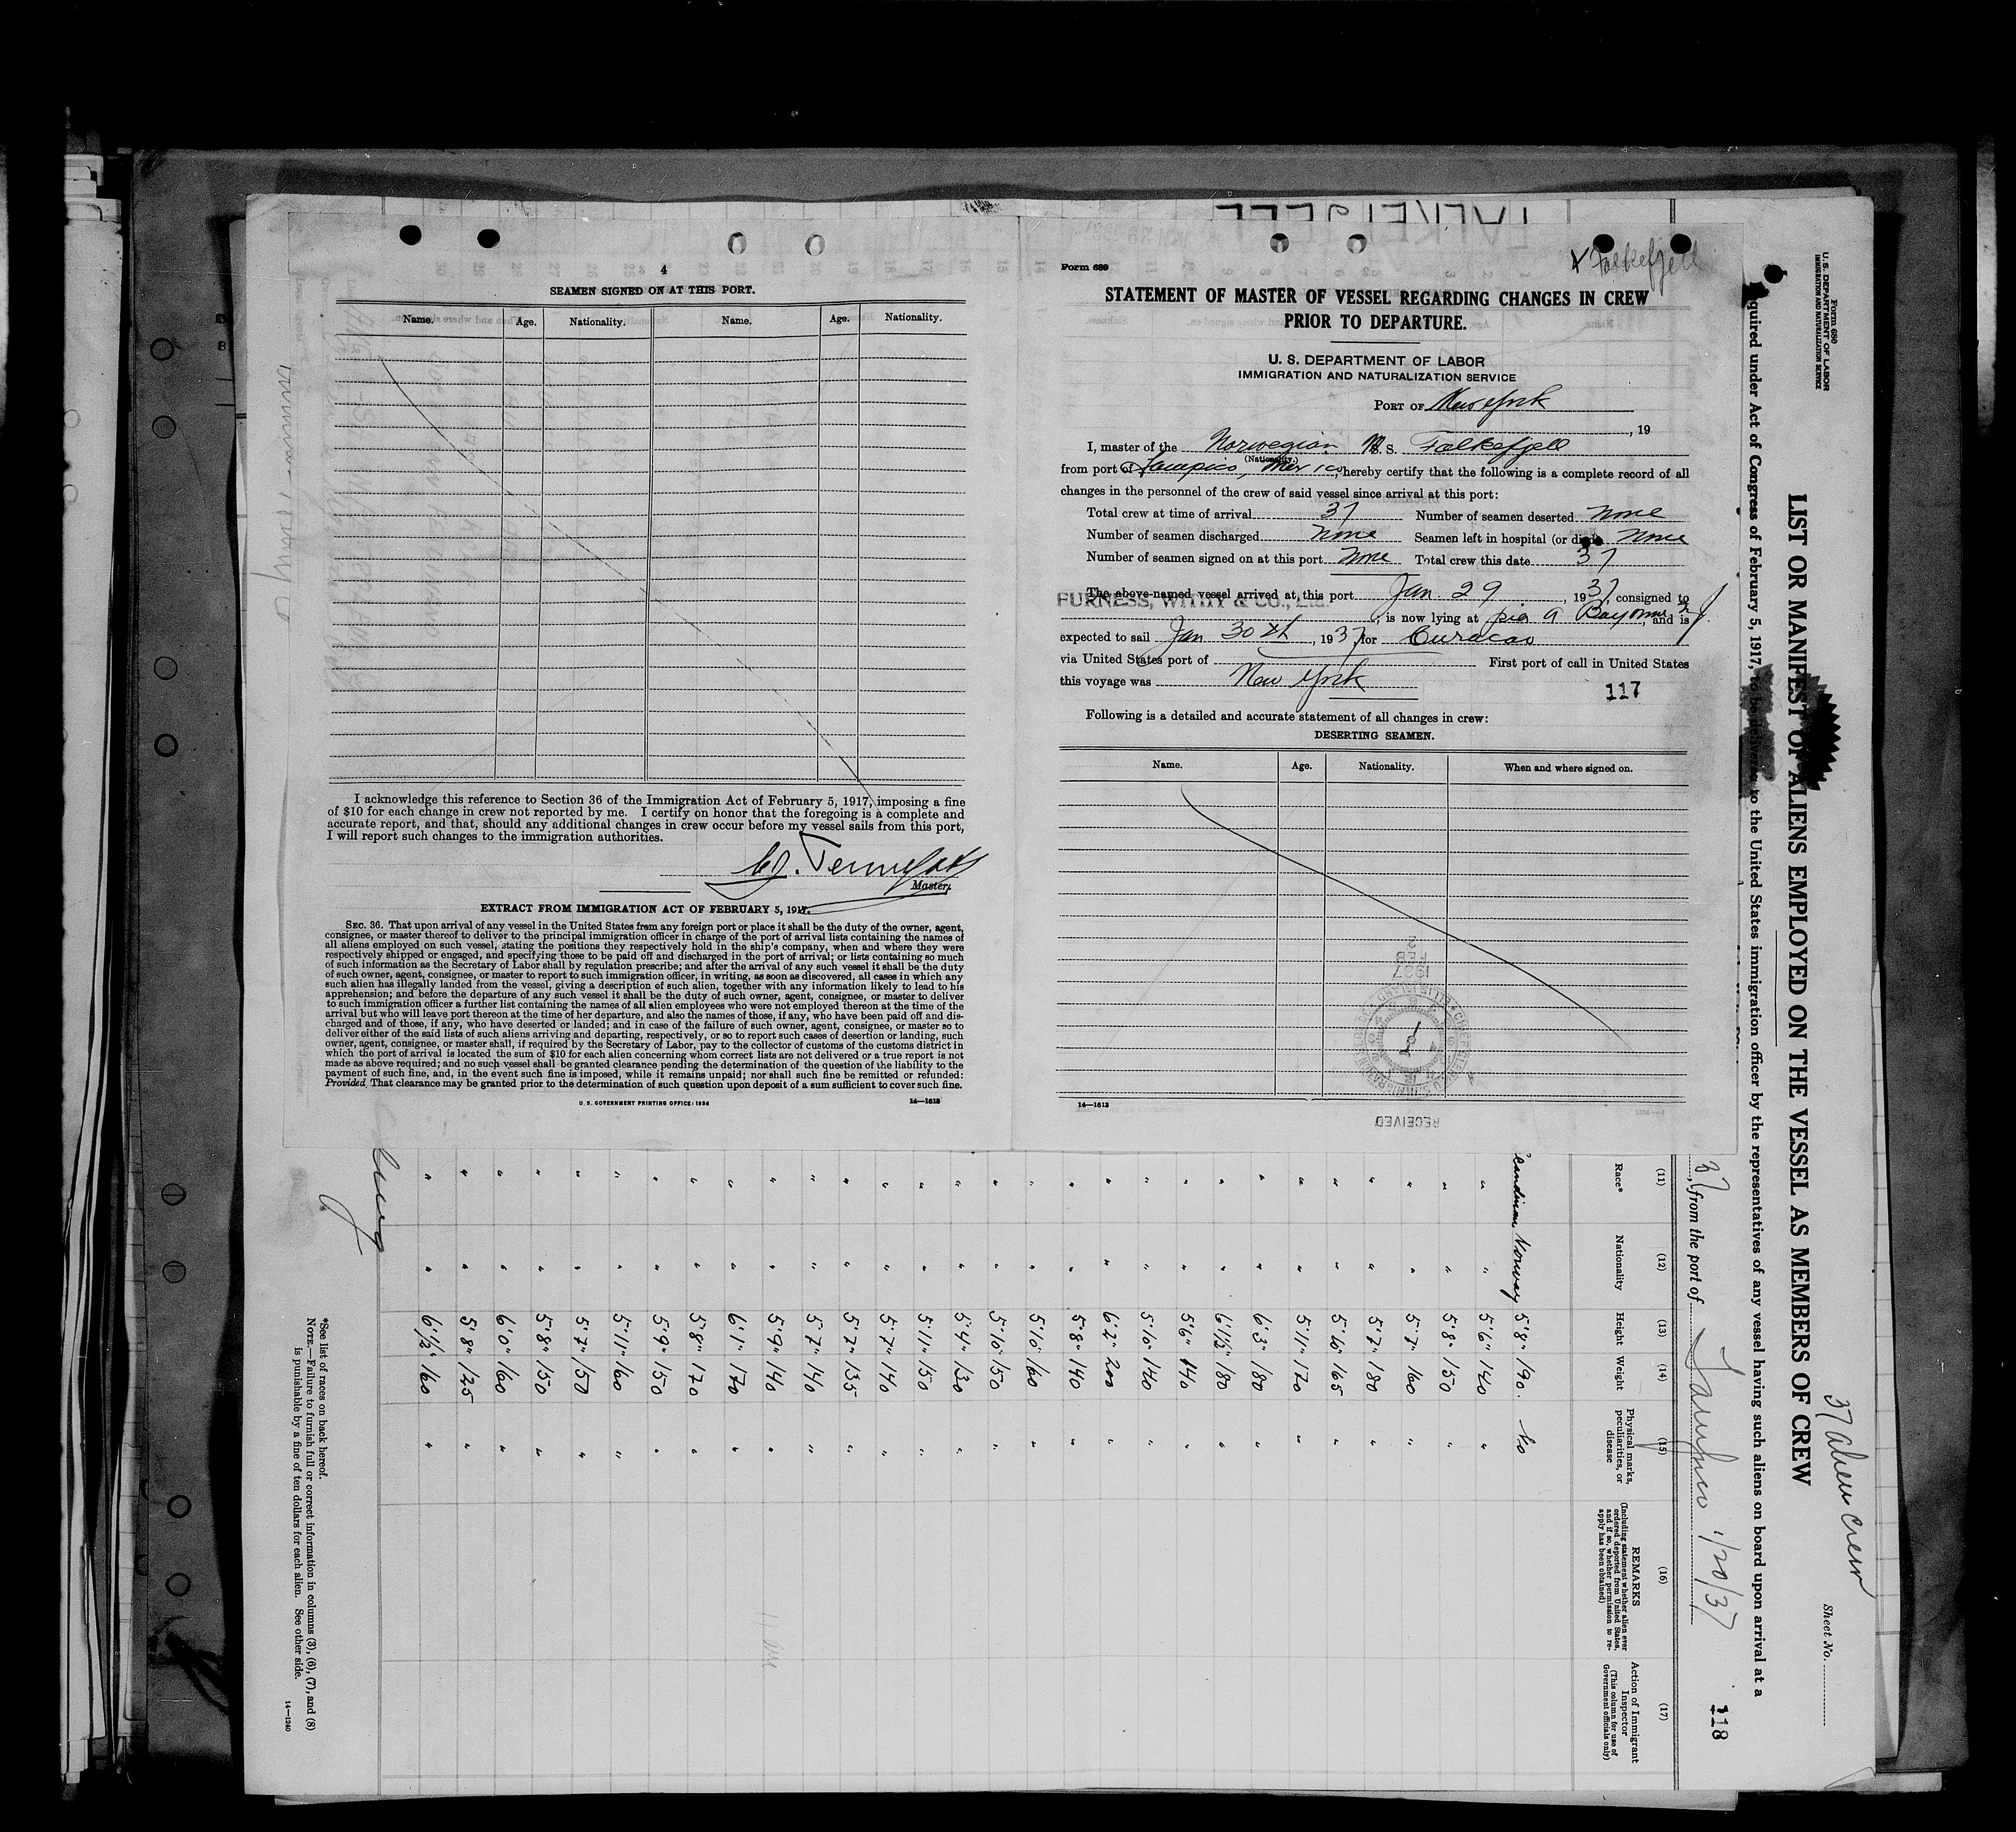 4
SEAMEN SIGNED ON AT THIS PORT.
Name. Age. Nationality. Name. Age. Nationality.
I acknowledge this reference to Section 36 of the Immigration Act of February 5, 1917, imposing a fine
of $10 for each change in crew not reported by me. I certify on honor that the foregoing is a complete and
accurate report, and that, should any additional changes in crew occur before my vessel sails from this port,
I will report such changes to the immigration authorities.
Master.
EXTRACT FROM IMMIGRATION ACT OF FEBRUARY 5, 1917.
SEC. 36. That upon arrival of any vessel in the United States from any foreign port or place it shall be the duty of the owner, agent,
consignee, or master thereof to deliver to the principal immigration officer in charge of the port of arrival lists containing the names of
all aliens employed on such vessel, stating the positions they respectively hold in the ship's company, when and where they were
respectively shipped or engaged, and specifying those to be paid off and discharged in the port of arrival; or lists containing so much
of such information as the Secretary of Labor shall by regulation prescribe; and after the arrival of any such vessel it shall be the duty
of such owner, agent, consignee, or master to report to such immigration officer, in writing, as soon as discovered, all cases in which any
such alien has illegally landed from the vessel, giving a description of such alien, together with any information likely to lead to his
apprehension; and before the departure of any such vessel it shall be the duty of such owner, agent, consignee, or master to deliver
to such immigration officer a further list containing the names of all alien employees who were not employed thereon at the time of the
arrival but who will leave port thereon at the time of her departure, and also the names of those, if any, who have been paid off and dis-
charged and of those, if any, who have deserted or landed; and in case of the failure of such owner, agent, consignee, or master so to
deliver either of the said lists of such aliens arriving and departing, respectively, or so to report such cases of desertion or landing, such
owner, agent, consignee, or master shall, if required by the Secretary of Labor, pay to the collector of customs of the customs district in
which the port of arrival is located the sum of $10 for each alien concerning whom correct lists are not delivered or a true report is not
made as above required; and no such vessel shall be granted clearance pending the determination of the question of the liability to the
payment of such fine, and, in the event such fine is imposed, while it remains unpaid; nor shall such fine be remitted or refunded:
Provided, That clearance may be granted prior to the determination of such question upon deposit of a sum sufficient to cover such fine.
U. S. GOVERNMENT PRINTING OFFICE: 1934 14—1613
Form 689
x Falkefjell
STATEMENT OF MASTER OF VESSEL REGARDING CHANGES IN CREW
PRIOR TO DEPARTURE.
U. S. DEPARTMENT OF LABOR
IMMIGRATION AND NATURALIZATION SERVICE
PORT OF New York
, 19
I, master of the Norwegian M. S. Falkefjell
(Nationality.)
from port of Tampico, Mexico, hereby certify that the following is a complete record of all
changes in the personnel of the crew of said vessel since arrival at this port:
Total crew at time of arrival 37 Number of seamen deserted None
Number of seamen discharged None Seamen left in hospital (or died) None
Number of seamen signed on at this port None Total crew this date 37
The above-named vessel arrived at this port Jan 29, 1937, consigned to
FURNESS, WITHY & CO., Ltd. is now lying at pier 9 Bayonne, and is
expected to sail Jan 30th, 1937 for Curacao
via United States port of First port of call in United States
this voyage was New York
117
Following is a detailed and accurate statement of all changes in crew:
DESERTING SEAMEN.
Name. Age. Nationality. When and where signed on.
1937
FEB
RECEIVED
14—1613
Form 680
U. S. DEPARTMENT OF LABOR
IMMIGRATION AND NATURALIZATION SERVICE
37 alien crew
Sheet No.
LIST OR MANIFEST OF ALIENS EMPLOYED ON THE VESSEL AS MEMBERS OF CREW
Required under Act of Congress of February 5, 1917, to be delivered to the United States immigration officer by the representatives of any vessel having such aliens on board upon arrival at a
37, from the port of Tampico 1/20/37
118
(11) (12) (13) (14) (15) (16) (17)
Race* Nationality Height Weight Physical marks, peculiarities, or disease
REMARKS (Including statement whether alien ever ordered deported from United States, and if so, whether permission to re-apply has been obtained)
Action of Immigrant Inspector (This column for use of Government officials only)
Scandinav Norway 5'8" 190. No
" " 5'6" 140 "
" " 5'8" 150 "
" " 5'7" 160 "
" " 5'7" 180 "
" " 5'6" 165 "
" " 5'11" 170 "
" " 6'3" 180 "
" " 6'1½" 180 "
" " 5'6" 140 "
" " 5'10" 140 "
" " 6'2" 200 "
" " 5'8" 140 "
" " 5'10" 160 "
" " 5'10" 150 "
" " 5'4" 130 "
" " 5'11" 150 "
" " 5'7" 140 "
" " 5'7" 135 "
" " 5'7" 140 "
" " 5'9" 140 "
" " 6'1" 170 "
" " 5'8" 170 "
" " 5'9" 150 "
" " 5'11" 160 "
" " 5'7" 150 "
" " 5'8" 150 "
" " 6'0" 160 "
" " 5'8" 125 "
" " 6'½" 160 "
*See list of races on back hereof.
NOTE.—Failure to furnish full or correct information in columns (3), (6), (7), and (8)
is punishable by a fine of ten dollars for each alien. See other side.
14—1240